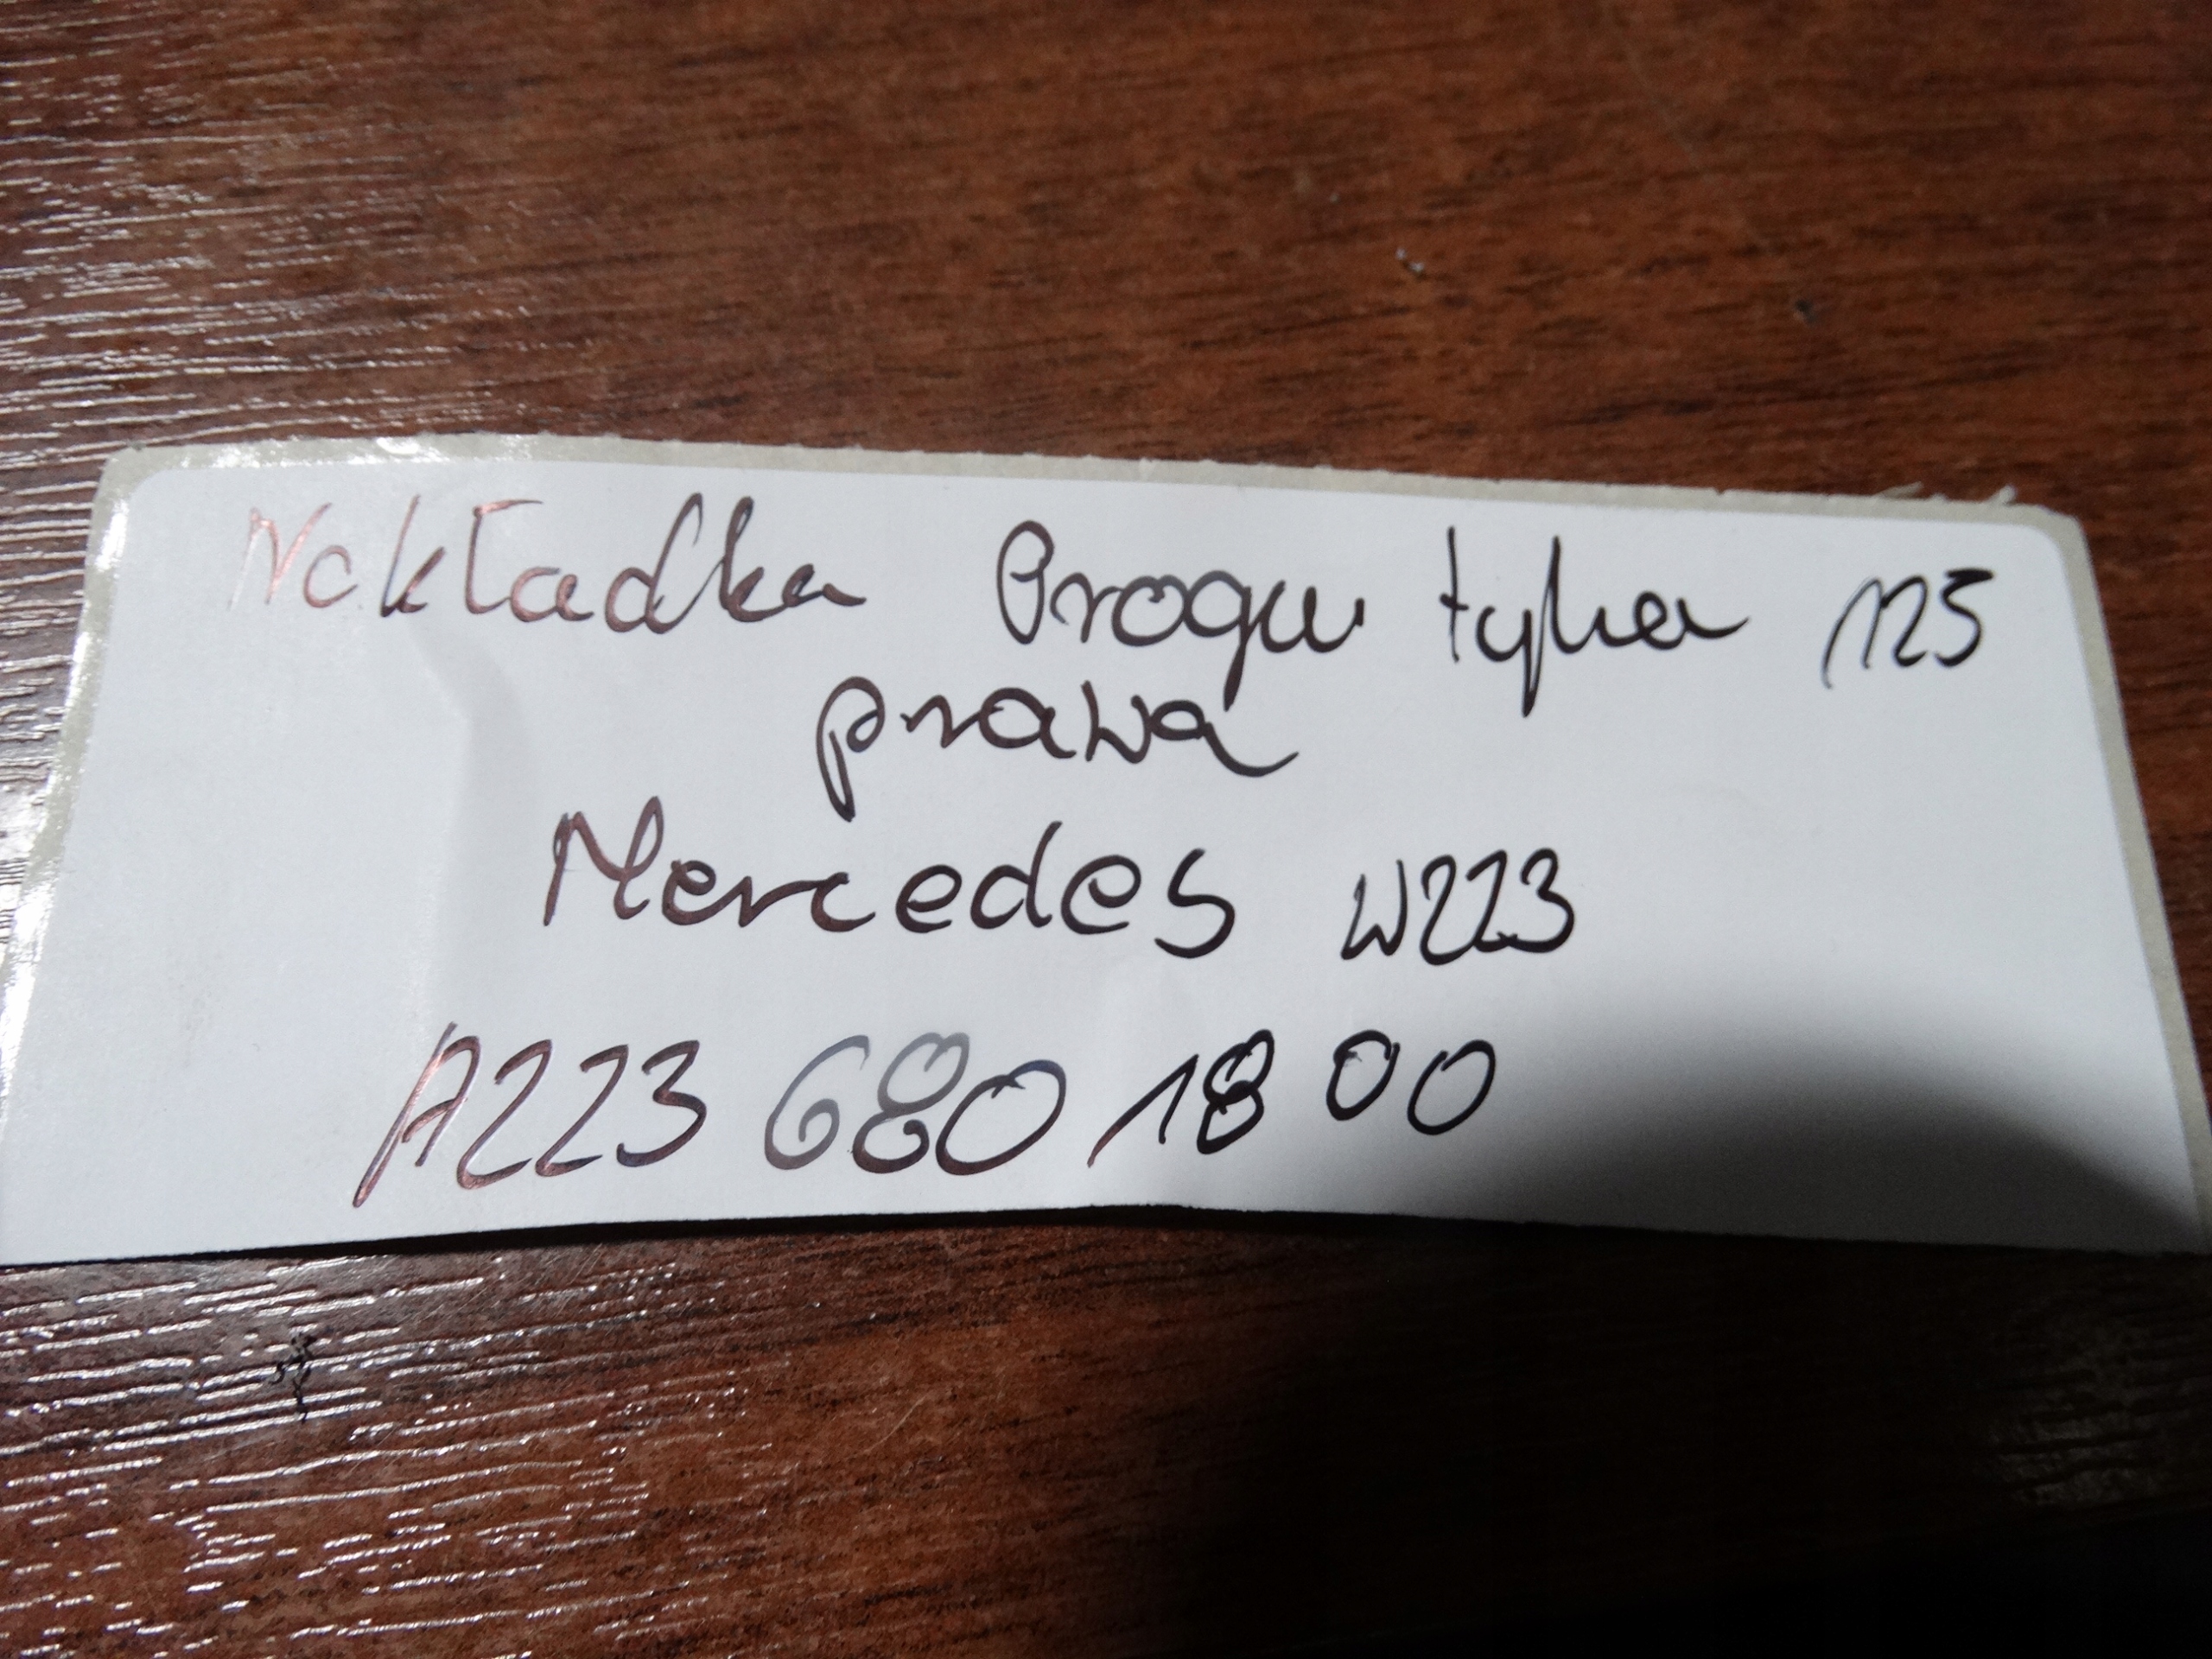 Nakładka Progu tylna 125
prawa
Mercedes W223
A223 680 18 00